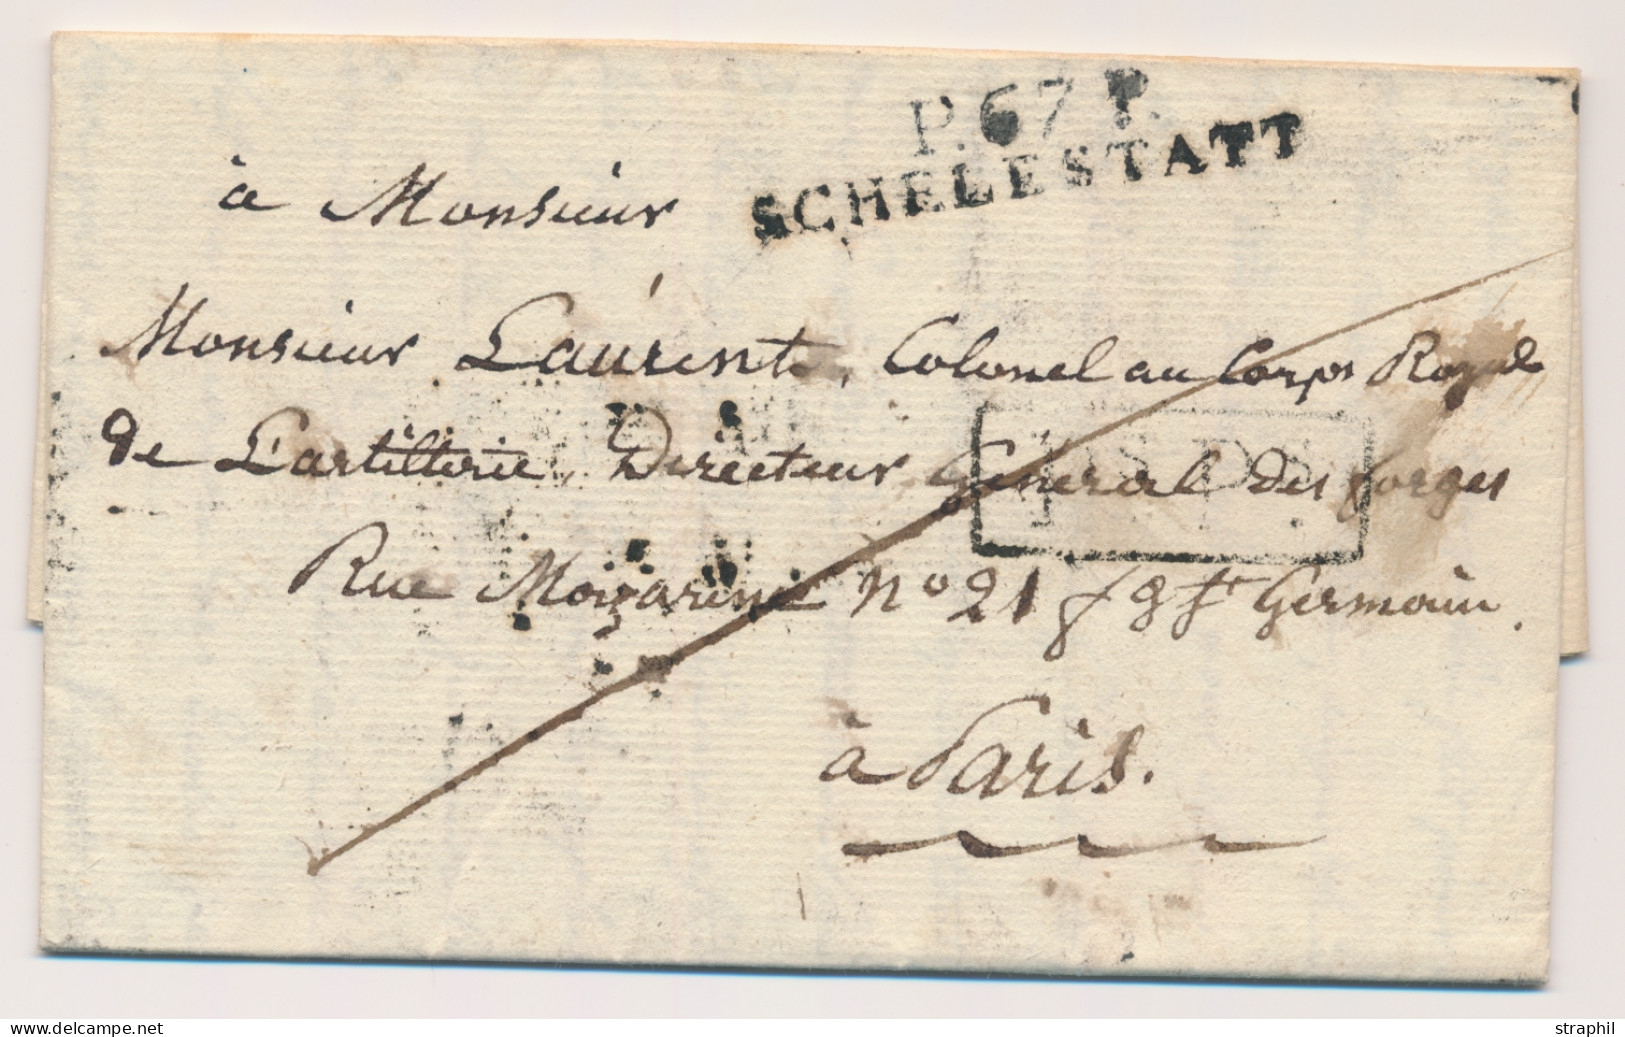 P. 67 P.
SCHELESTATT
à Monsieur
Monsieur Laurent, Colonel au Corps Royal
de L'artillerie, Directeur General des forges
Rue Mazarine n° 21 f g St Germain.
à Paris.
delcampe.net
straphil